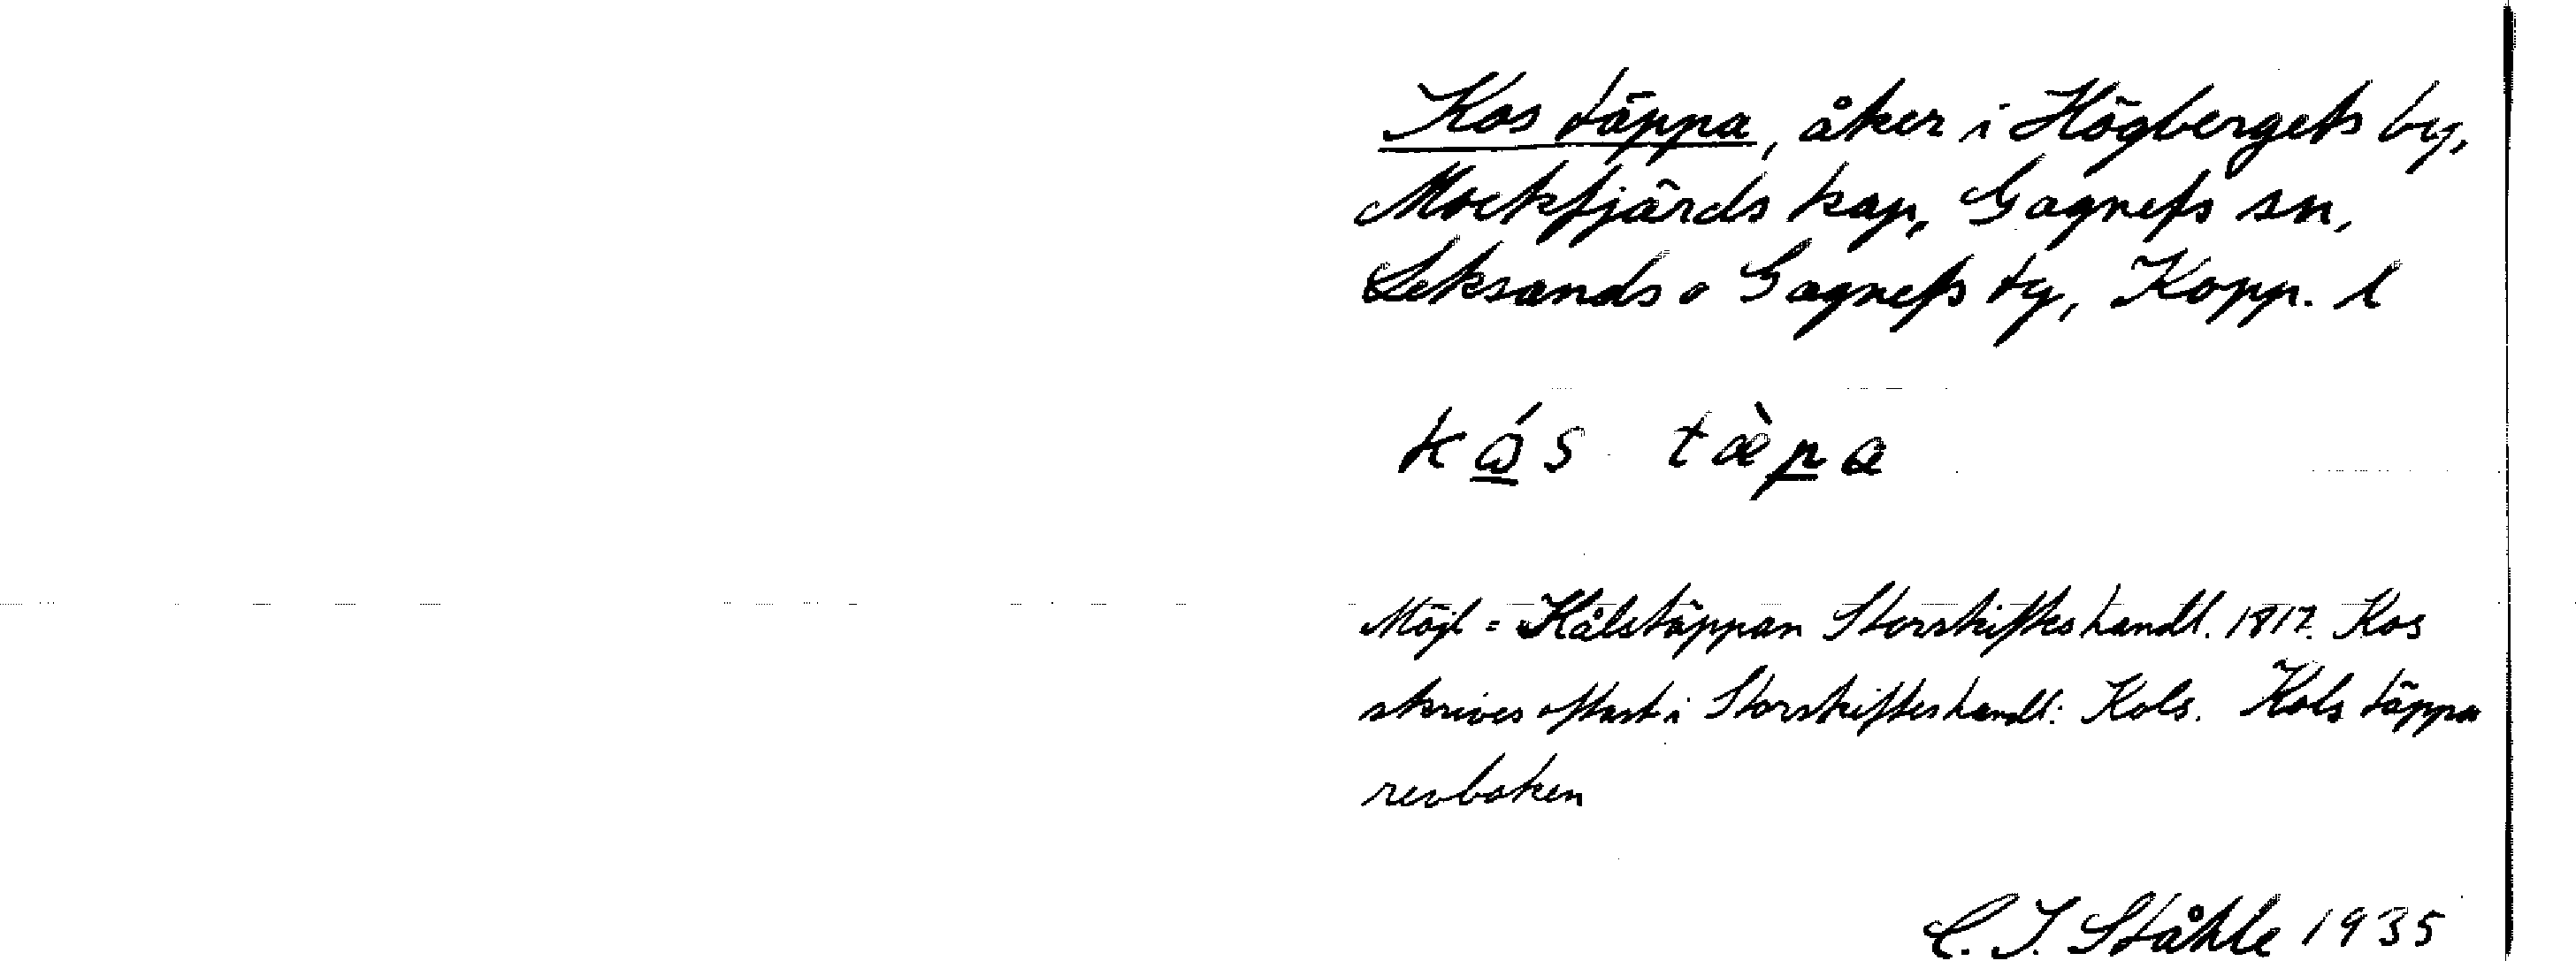 Kos täppa, åker i Högbergets by,
Mockfjärds kap, Gagnefs sn,
Leksands o Gagnefs tg, Kopp. l
kɷ́s tæ̀pa
Möjl = Kålstäppan Storskifteshandl. 1817. Kos
skrives oftast i Storskifteshandl: Kols. Kols täppa
revboken
C. I. Ståhle 1935